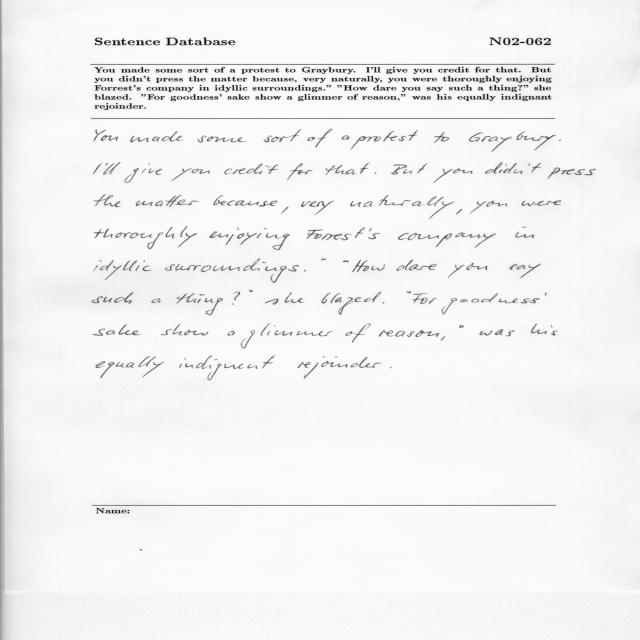 Sentence Database N02-062
You made some sort of a protest to Graybury. I'll give you credit for that. But
you didn't press the matter because, very naturally, you were thoroughly enjoying
Forrest's company in idyllic surroundings." "How dare you say such a thing?" she
blazed. "For goodness' sake show a glimmer of reason," was his equally indignant
rejoinder.
You made some sort of a protest to Graybury.
I'll give you credit for that. But you didn't press
the matter because, very naturally, you were
thoroughly enjoying Forrest's company in
idyllic surroundings." "How dare you say
such a thing?" she blazed. "For goodness'
sake show a glimmer of reason," was his
equally indignent rejoinder.
Name: